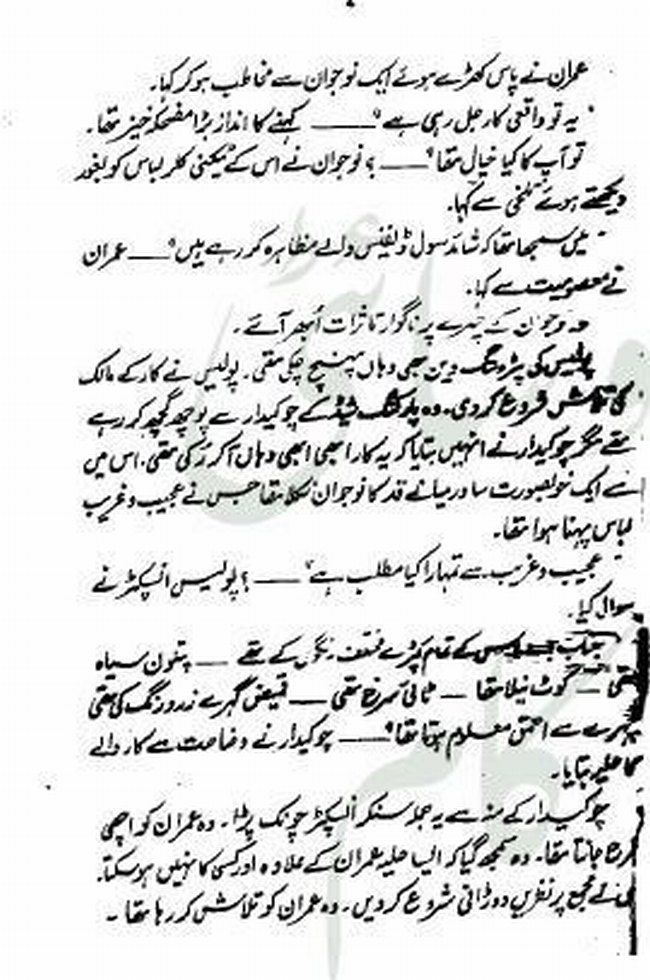 عمران نے پاس کھڑے ہوئے ایک نوجوان سے مخاطب ہو کر کہا۔
" یہ تو واقعی کار جل رہی ہے " ——— کہنے کا انداز بڑا مضحکہ خیز تھا۔
تو آپ کا کیا خیال تھا " —— ؟ نوجوان نے اس کے ٹیکنی کلر لباس کو بغور
دیکھتے ہوئے تلخی سے کہا۔
" میں سمجھا تھا کہ شائد سول ڈیفنس والے مظاہرہ کر رہے ہیں " —— عمران
نے معصومیت سے کہا۔
نوجوان کے چہرے پر ناگوار تاثرات اُبھر آئے۔
پولیس کی پٹرولنگ وین بھی وہاں پہنچ چکی تھی۔ پولیس نے کار کے مالک
کی تلاش شروع کر دی۔ وہ پارکنگ شیڈ کے چوکیدار سے پوچھ گچھ کر رہے
تھے مگر چوکیدار نے انہیں بتایا کہ یہ کار ابھی ابھی وہاں آ کر رُکی تھی۔ اس میں
سے ایک خوبصورت سا درمیانے قد کا نوجوان نکلا تھا جس نے عجیب و غریب
لباس پہنا ہوا تھا۔
" عجیب و غریب سے تمہارا کیا مطلب ہے " —— ؟ پولیس انسپکٹر نے
سوال کیا۔
جناب اس کے تمام کپڑے مختلف رنگوں کے تھے —— پتلون سیاہ
تھی —— کوٹ نیلا تھا —— ٹائی سرخ تھی —— قمیض گہرے زرد رنگ کی تھی
چہرے سے احمق معلوم ہوتا تھا " —— چوکیدار نے وضاحت سے کار والے
کا حلیہ بتایا۔
چوکیدار کے منہ سے یہ جملہ سنکر انسپکٹر چونک پڑا۔ وہ عمران کو اچھی
طرح جانتا تھا۔ وہ سمجھ گیا کہ ایسا حلیہ عمران کے علاوہ اور کسی کا نہیں ہو سکتا۔
نے مجمع پر نظریں دوڑانی شروع کر دیں۔ وہ عمران کو تلاش کر رہا تھا۔